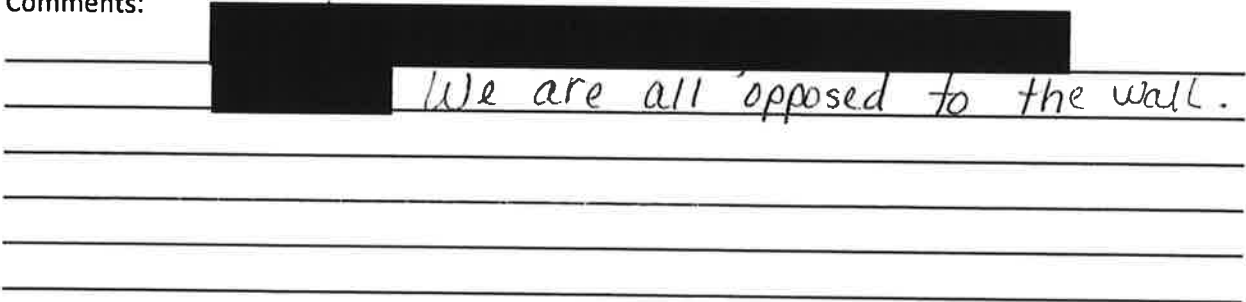 Comments:
We are all opposed to the wall.